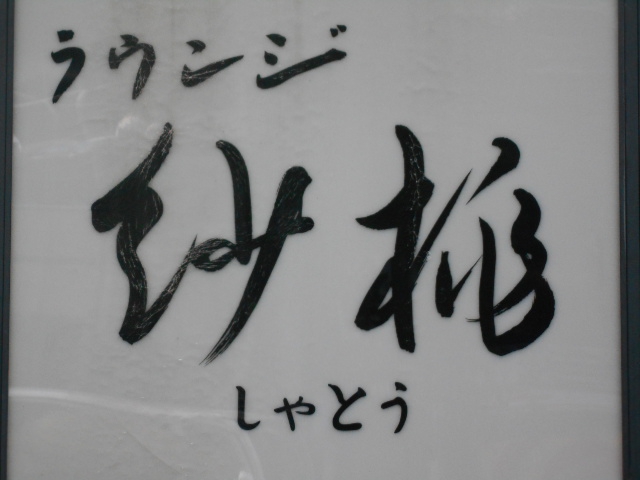 ラウンジ
紗桃
しゃとう